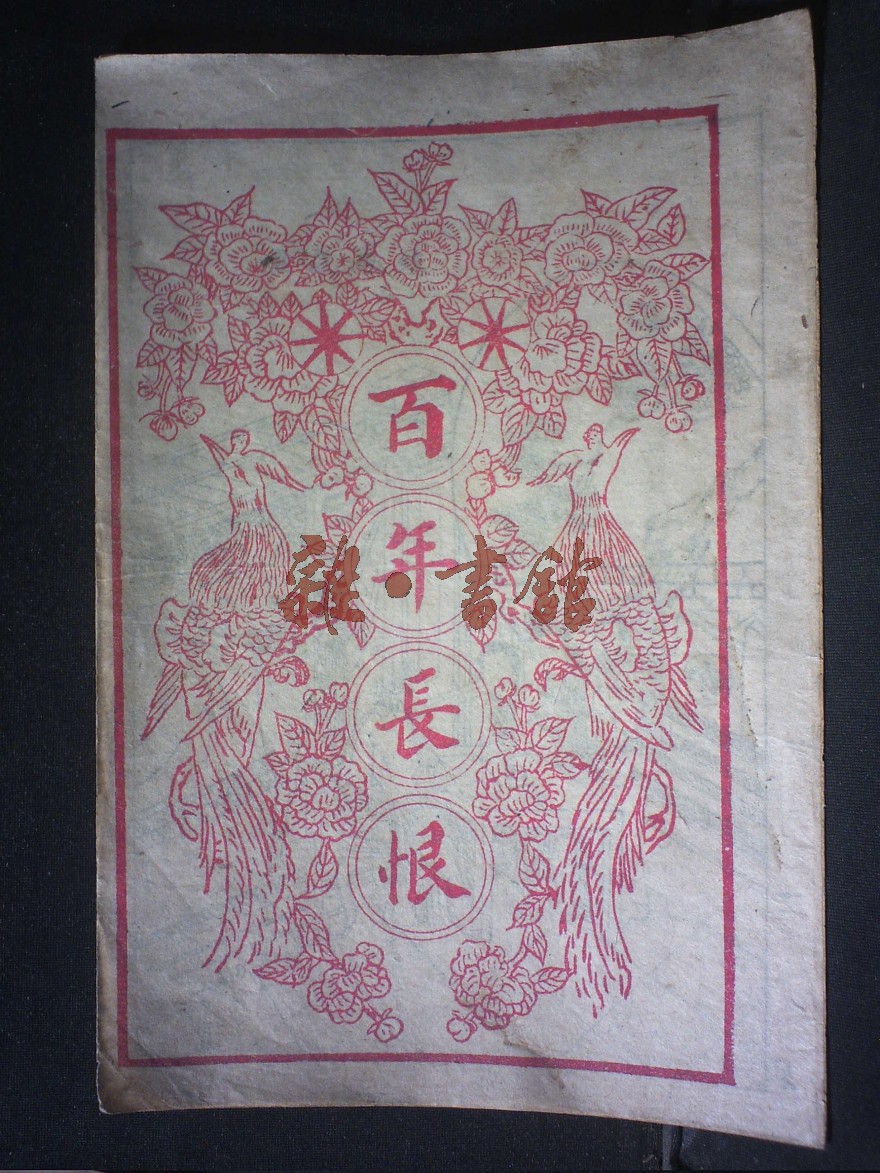 百
年
長
恨
雜·書館